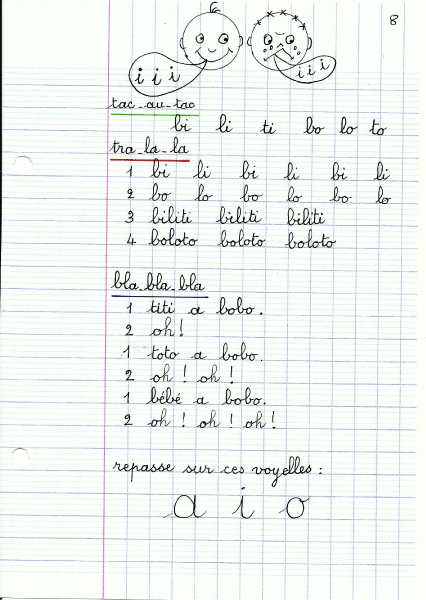 8
i i i
i i i
tac-au-tac
bi li ti bo lo to
tra-la-la
1 bi li bi li bi li
2 bo lo bo lo bo lo
3 biliti biliti biliti
4 boloto boloto boloto
bla-bla-bla
1 titi a bobo.
2 oh!
1 toto a bobo.
2 oh ! oh !
1 bébé a bobo.
2 oh ! oh ! oh !
repasse sur ces voyelles :
a i o